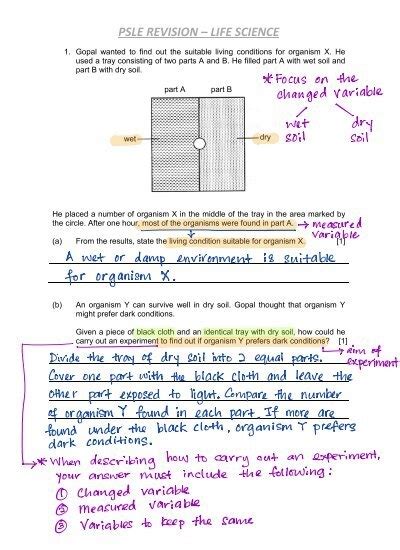 PSLE REVISION – LIFE SCIENCE
1. Gopal wanted to find out the suitable living conditions for organism X. He
used a tray consisting of two parts A and B. He filled part A with wet soil and
part B with dry soil.
* Focus on the
changed variable
wet soil
dry soil
part A part B
wet
dry
He placed a number of organism X in the middle of the tray in the area marked by
the circle. After one hour, most of the organisms were found in part A.
→ measured variable
(a) From the results, state the living condition suitable for organism X. [1]
A wet or damp environment is suitable
for organism X.
(b) An organism Y can survive well in dry soil. Gopal thought that organism Y
might prefer dark conditions.
Given a piece of black cloth and an identical tray with dry soil, how could he
carry out an experiment to find out if organism Y prefers dark conditions? [1]
→ aim of experiment
Divide the tray of dry soil into 2 equal parts.
Cover one part with the black cloth and leave the
other part exposed to light. Compare the number
of organism Y found in each part. If more are
found under the black cloth, organism Y prefers
dark conditions.
* When describing how to carry out an experiment,
your answer must include the following:
① Changed variable
② measured variable
③ Variables to keep the same